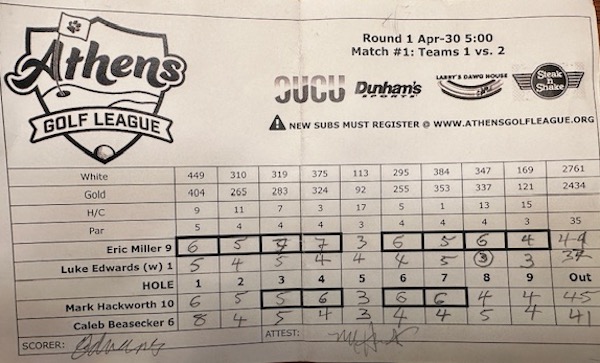 Athens
GOLF LEAGUE
Round 1 Apr-30 5:00
Match #1: Teams 1 vs. 2
OUCU Dunham's SPORTS LARRY'S DAWG HOUSE Steak n Shake
NEW SUBS MUST REGISTER @ WWW.ATHENSGOLFLEAGUE.ORG
White 449 310 319 375 113 295 384 347 169 2761
Gold 404 265 283 324 92 255 353 337 121 2434
H/C 9 11 7 3 17 5 1 13 15
Par 5 4 4 4 3 4 4 4 3 35
Eric Miller 9 6 5 7 3 6 5 6 4
Luke Edwards (w) 1 5 4 5 4 4 4 5 3 3 37
HOLE 1 2 3 4 5 6 7 8 9 Out
Mark Hackworth 10 6 5 5 6 3 6 6 4 4 45
Caleb Beasecker 6 8 4 5 4 3 4 4 5 4 41
SCORER: ATTEST: